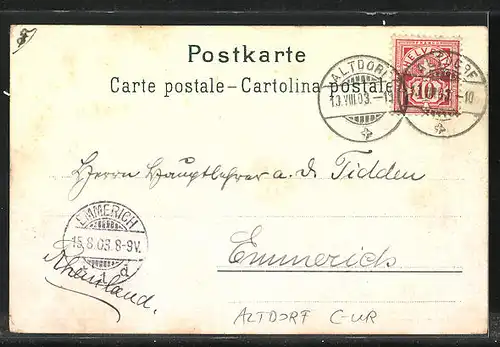 Postkarte
Carte postale – Cartolina postale
ALTDORF
13.VIII.03.
10
Herrn Hauptlehrer a. d. Tidden
EMMERICH
15.8.03.8-9V.
d
Emmerich
Rheinland.
ALTDORF C-UR